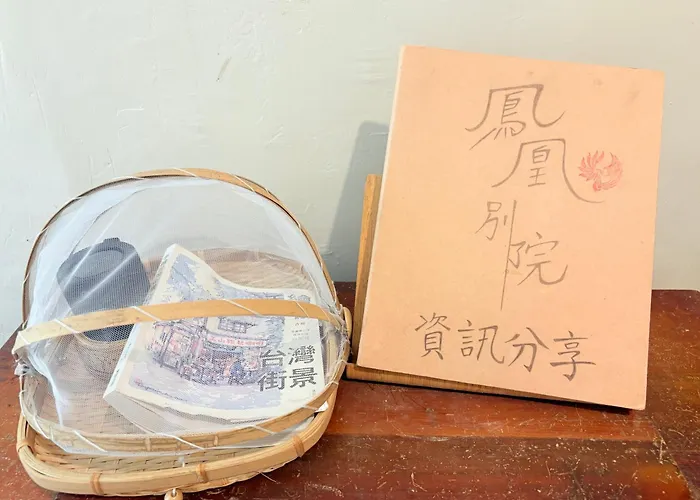 鳳凰
別院
資訊分享
台灣
街景